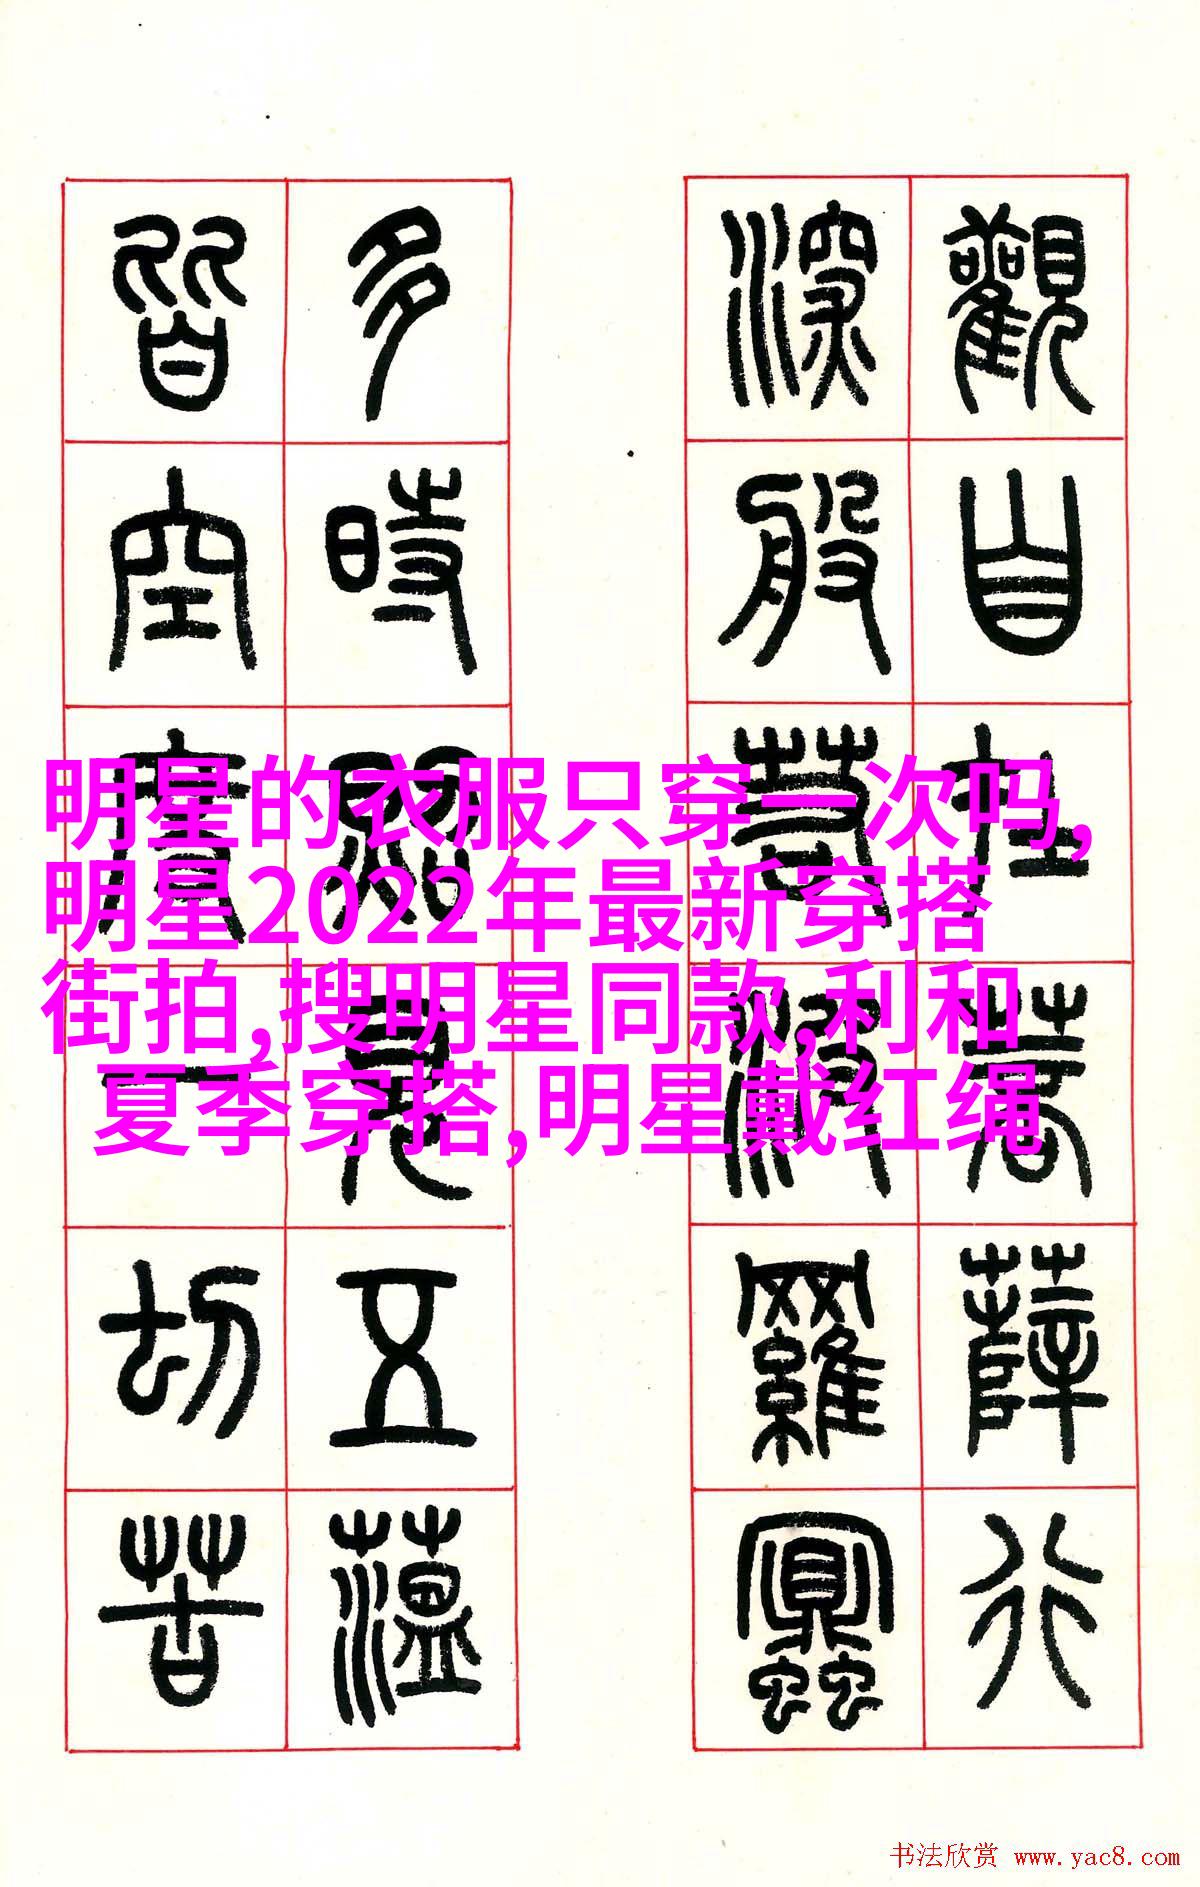 觀自在菩薛行
深般若波羅蜜
多時照見五薀
皆空度一切苦
明星的衣服只穿一次吗,
明星2022年最新穿搭
街拍,搜明星同款,利和
夏季穿搭,明星戴红绳
书法欣赏 www.yac8.com